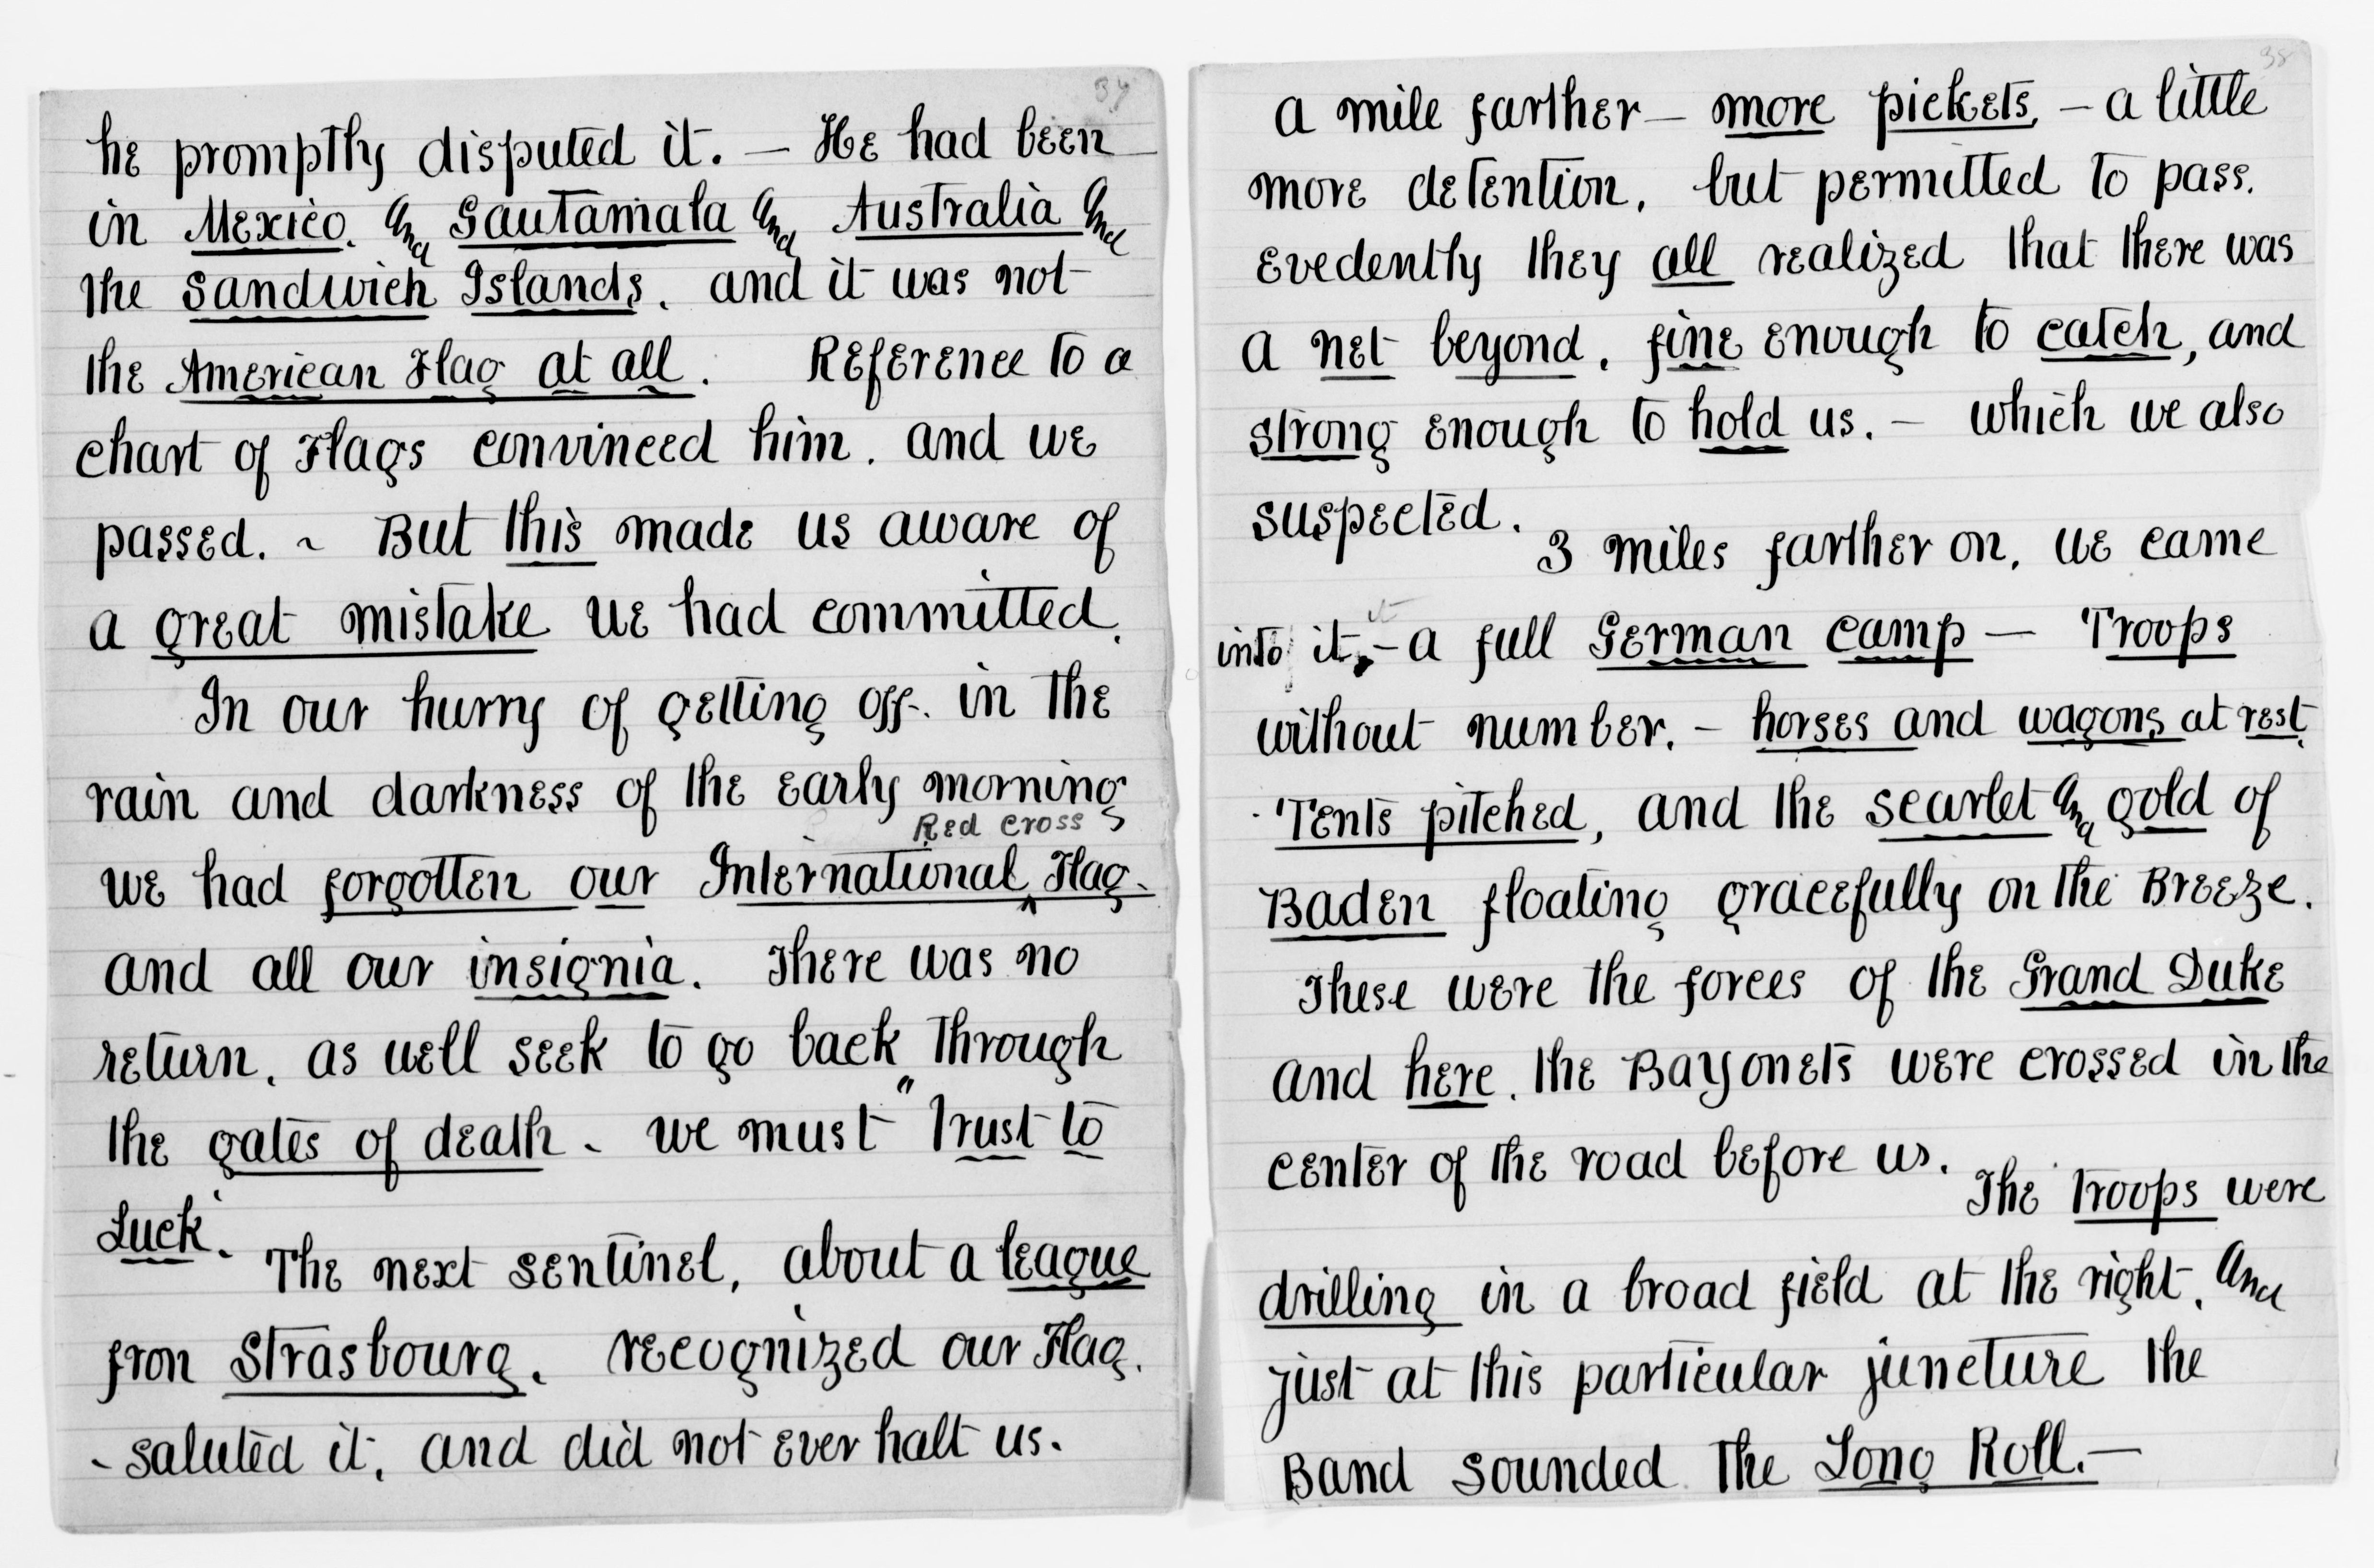 34
he promptly disputed it. — He had been
in Mexico. And Gautamala And Australia And
the Sandwich Islands. and it was not
the American Flag at all. Reference to a
chart of Flags convinced him. and we
passed. ~ But this made us aware of
a great mistake we had committed.
In our hurry of getting off. in the
rain and darkness of the early morning
Red Cross
we had forgotten our International ^ Flag.
and all our insignia. There was no
return. as well seek to go back through
the gates of death. we must "trust to
Luck".
The next sentinel, about a league
fron Strasbourg. recognized our Flag.
- saluted it, and did not ever halt us.
35
a mile farther — more pickets, — a little
more detention, but permitted to pass.
evedently they all realized that there was
a net beyond. fine enough to catch, and
strong enough to hold us. — which we also
suspected.
3 miles farther on, we came
it
into it, — a full German camp — Troops
without number. — horses and wagons at rest.
Tents pitched, and the scarlet And gold of
Baden floating gracefully on the Breeze.
These were the forces of the Grand Duke
and here. the Bayonets were crossed in the
center of the road before us.
The troops were
drilling in a broad field at the right. And
just at this particular juncture the
Band sounded the Long Roll. —